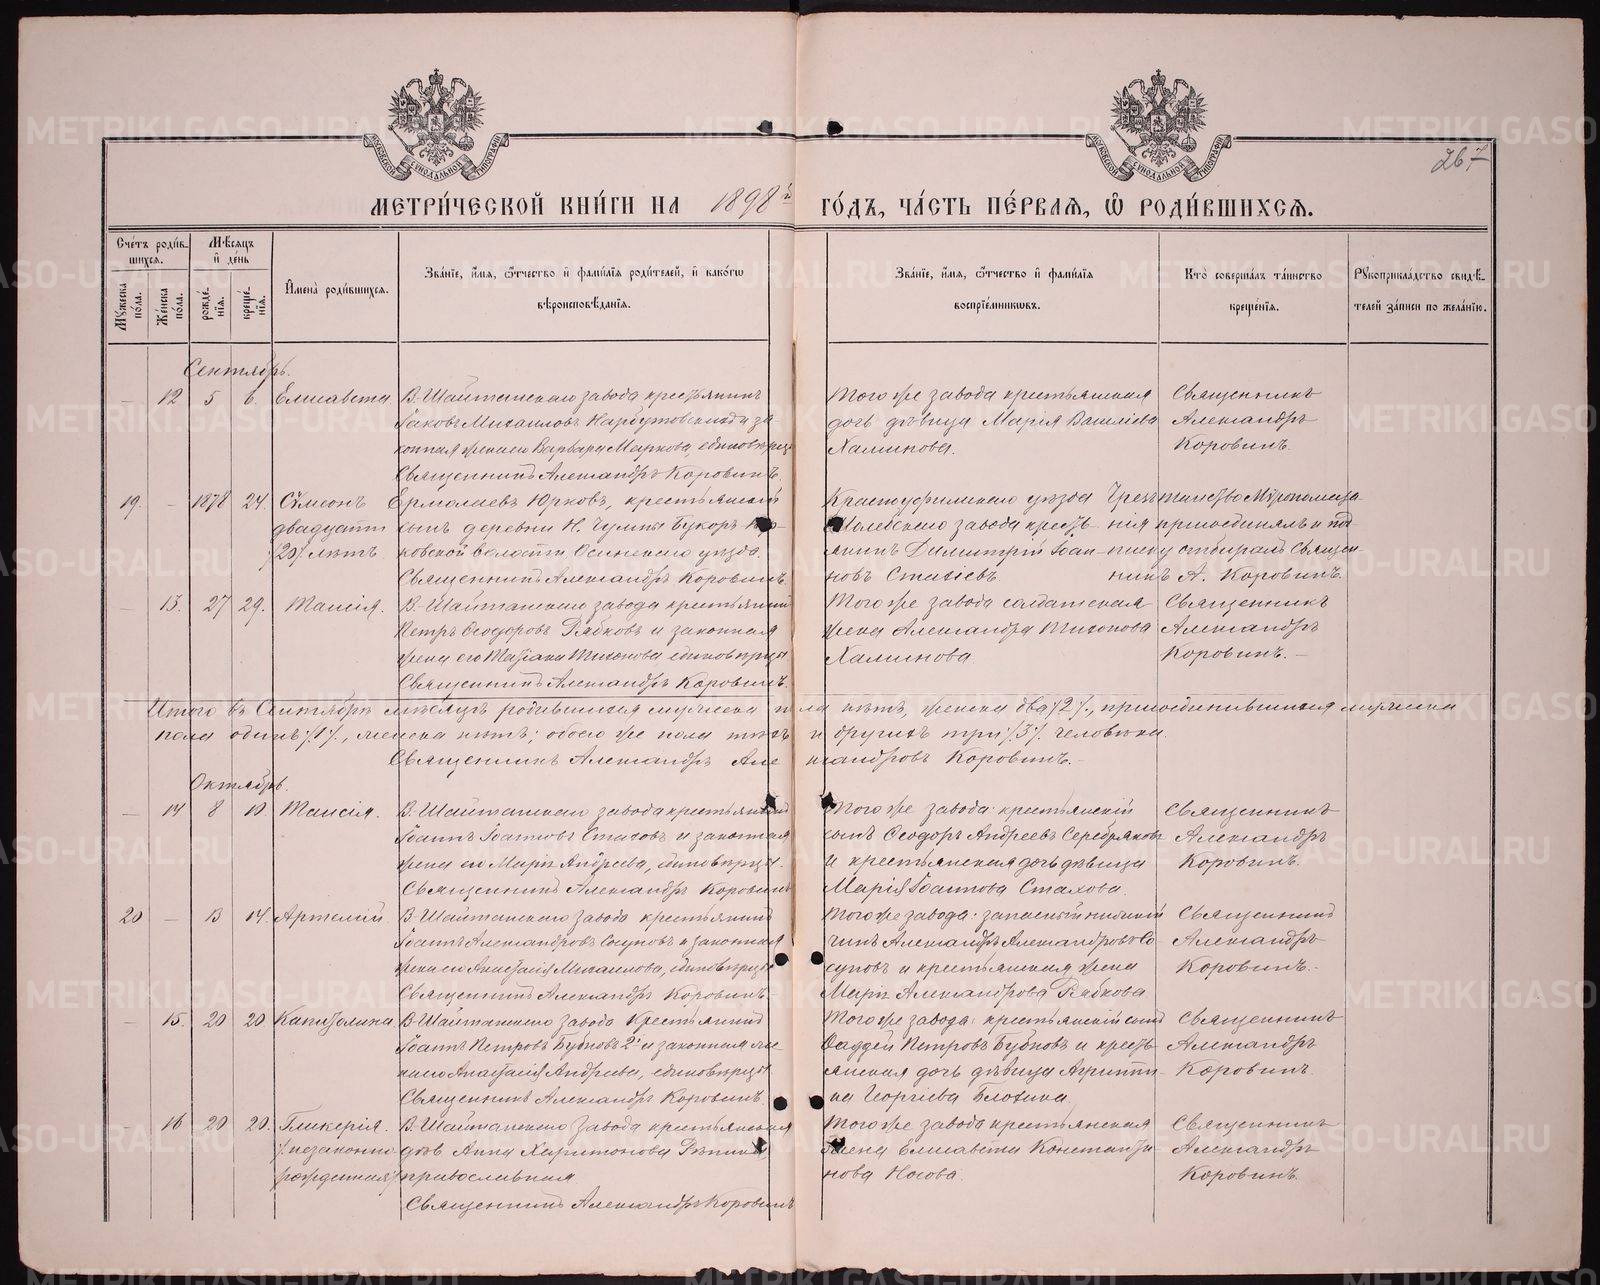 267
МЕТРИ́ЧЕСКОЙ КНИ́ГИ НА 1898 й ГО́ДЪ, ЧА́СТЬ ПЕ́РВАЯ, Ѡ РОДИ́ВШИХСЯ.
Сче́тъ роди́в-
шихся.
Мꙋжеска по́ла.
Же́нска по́ла.
Мѣ́сяцъ и де́нь
рожде́-нїя.
креще́-нїя.
И́мена роди́вшихся.
Зва́нїе, и́мя, ѻ҆́тчество и фами́лїя роди́телей, и како́гѡ
вѣроисповѣ́данїя.
Зва́нїе, и́мя, ѻ҆́тчество и фами́лїя
воспрїе́мникѡвъ.
Кто̀ соверша́лъ та́инство
креще́нїя.
Рꙋкоприкла́дство свидѣ́-
телей за́писи по жела́нїю.
Сентябрь.
— 12 5 6. Елисавета В. Шайтанскаго завода крестьянинъ
Іаковъ Михаиловъ и за-
конная жена его Варвара Маркова, единовѣрцы
Священникъ Александръ Коровинъ.
Того же завода крестьянская
дочь дѣвица Марія Василіева
Халинова.
Священникъ
Александръ
Коровинъ.
19. — 1878 24. Сѵмеонъ
двадцати
/20/ лѣтъ
Ермолаевъ Юрковъ, крестьянскій
сынъ деревни Н.
волости Осинскаго уѣзда.
Священникъ Александръ Коровинъ.
Красноуфимскаго уѣзда
завода кресть-
янинъ Димитрій Іоан-
новъ
Чрезъ таинство Мѵропомаза-
нія присоединялъ и под-
писку отбиралъ Священ-
никъ А. Коровинъ.
— 13. 27 29. Таисія. В. Шайтанскаго завода крестьянинъ
Петръ Ѳеодоровъ Рябковъ и законная
жена его Татіана Тихонова единовѣрцы
Священникъ Александръ Коровинъ.
Того же завода солдатская
жена Александра Тихонова
Халинова.
Священникъ
Александръ
Коровинъ. —
Итого въ Сентябрѣ мѣсяцѣ родившихся мужеска пола нѣтъ, женска два /2/, присоединившихся мужеска
пола одинъ /1/, женска нѣтъ; обоего же пола тѣхъ и другихъ три /3/ человѣка.
Священникъ Александръ Александровъ Коровинъ. —
Октябрь.
— 14 8 10. Таисія. В. Шайтанскаго завода крестьянинъ
Іоаннъ Іоанновъ Стаховъ и законная
жена его Марія Андреева, единовѣрцы.
Священникъ Александръ Коровинъ
Того же завода: крестьянскій
сынъ Ѳеодоръ Андреевъ Серебряковъ
и крестьянская дочь дѣвица
Марія Іоаннова Стахова.
Священникъ
Александръ
Коровинъ.
20 — 13 14. Артемій. В. Шайтанскаго завода крестьянинъ
Іоаннъ Александровъ Сосуновъ и законная
жена его Анастасія Михаилова, единовѣрцы
Священникъ Александръ Коровинъ. —
Того же завода: запасный нижній
чинъ Александръ Александровъ Со-
суновъ и крестьянская жена
Марія Александрова Рябкова
Священникъ
Александръ
Коровинъ.
— 15. 20 20 Капитолина В. Шайтанскаго завода Крестьянинъ
Іоаннъ Петровъ Бубновъ 2й и законная же-
на его Анастасія Андреева, единовѣрцы
Священникъ Александръ Коровинъ
Того же завода: крестьянскій сынъ
Ѳаддей Петровъ Бубновъ и кресть-
янская дочь дѣвица Агриппи-
на Георгіева Блохина.
Священникъ
Александръ
Коровинъ.
— 16 20 20. Гликерія.
/незаконно
рожденная/
В. Шайтанскаго Завода крестьянская
дочь Анна Харитонова
православная.
Священникъ Александръ Коровинъ
Того же завода крестьянская
жена Елисавета Константи-
нова Носова.
Священникъ
Александръ
Коровинъ.